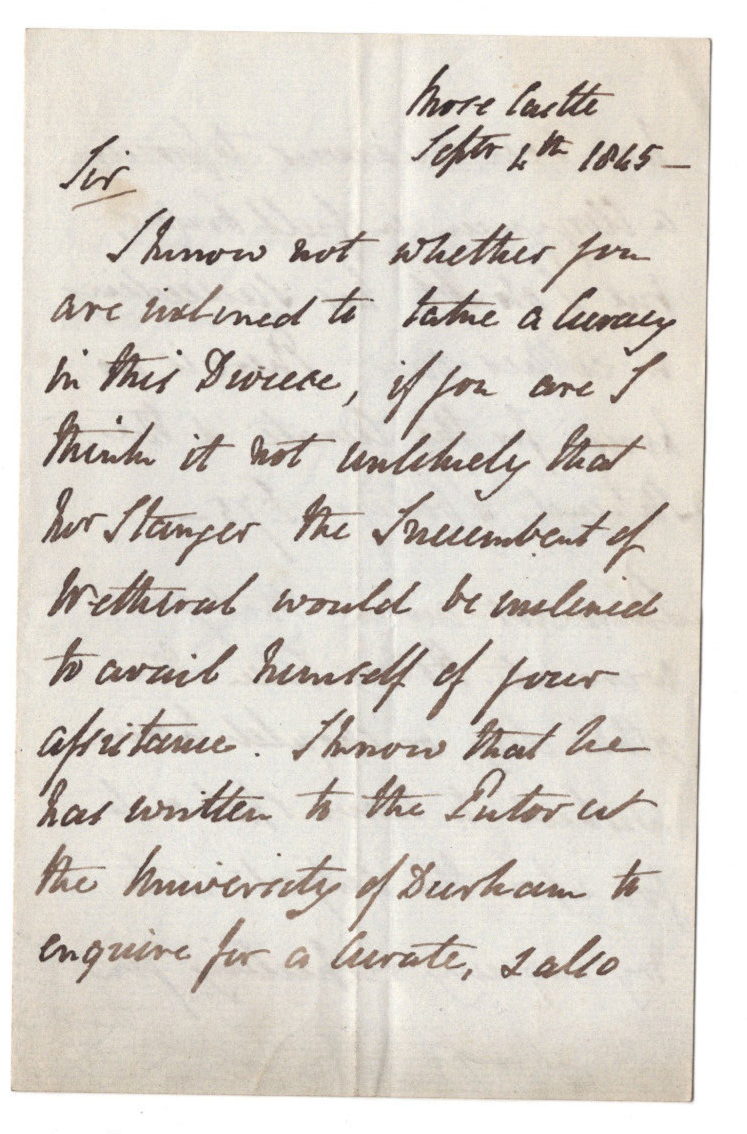 Rose Castle
Septr 4th 1845 –
Sir
I know not whether you
are inclined to take a Curacy
in this Diocese, if you are I
think it not unlikely that
Mr Stanger the Incumbent of
Wetheral would be inclined
to avail himself of your
assistance. I know that he
has written to the Tutor at
the University of Durham to
enquire for a Curate, & also